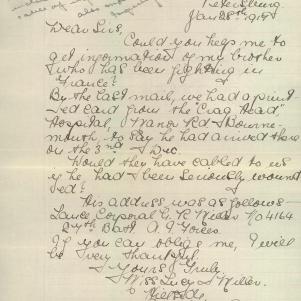 Petersburg
Jan 28th 1917
Dear Sirs,
Could you help me to
get information of my brother
who has been fighting in
France?
By the last mail, we had a print
-ed card from the "Crag Head"
Hospital, Manor Rd Bourne-
mouth, to say he had arrived there
on the 3rd Dec.
Would they have cabled to us
if he had been seriously wound
-ed?
His address was as follows
Lance Corporal G. R. Willer No 4164
27th Batt A. I. Forces.
If you can oblige me, I will
be very thankful.
Yours Truly
Miss Lucy Willer